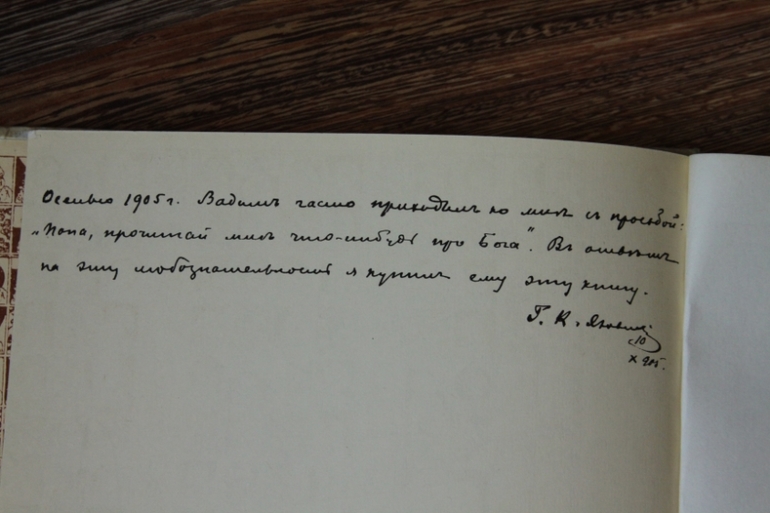 Осенью 1905 г. Вадимъ часто приходилъ ко мнѣ съ просьбой:
„Папа, прочитай мнѣ что-нибудь про Бога“. Въ отвѣтъ
на эту любознательность я купилъ ему эту книгу.
Г. К.
10
X 905.